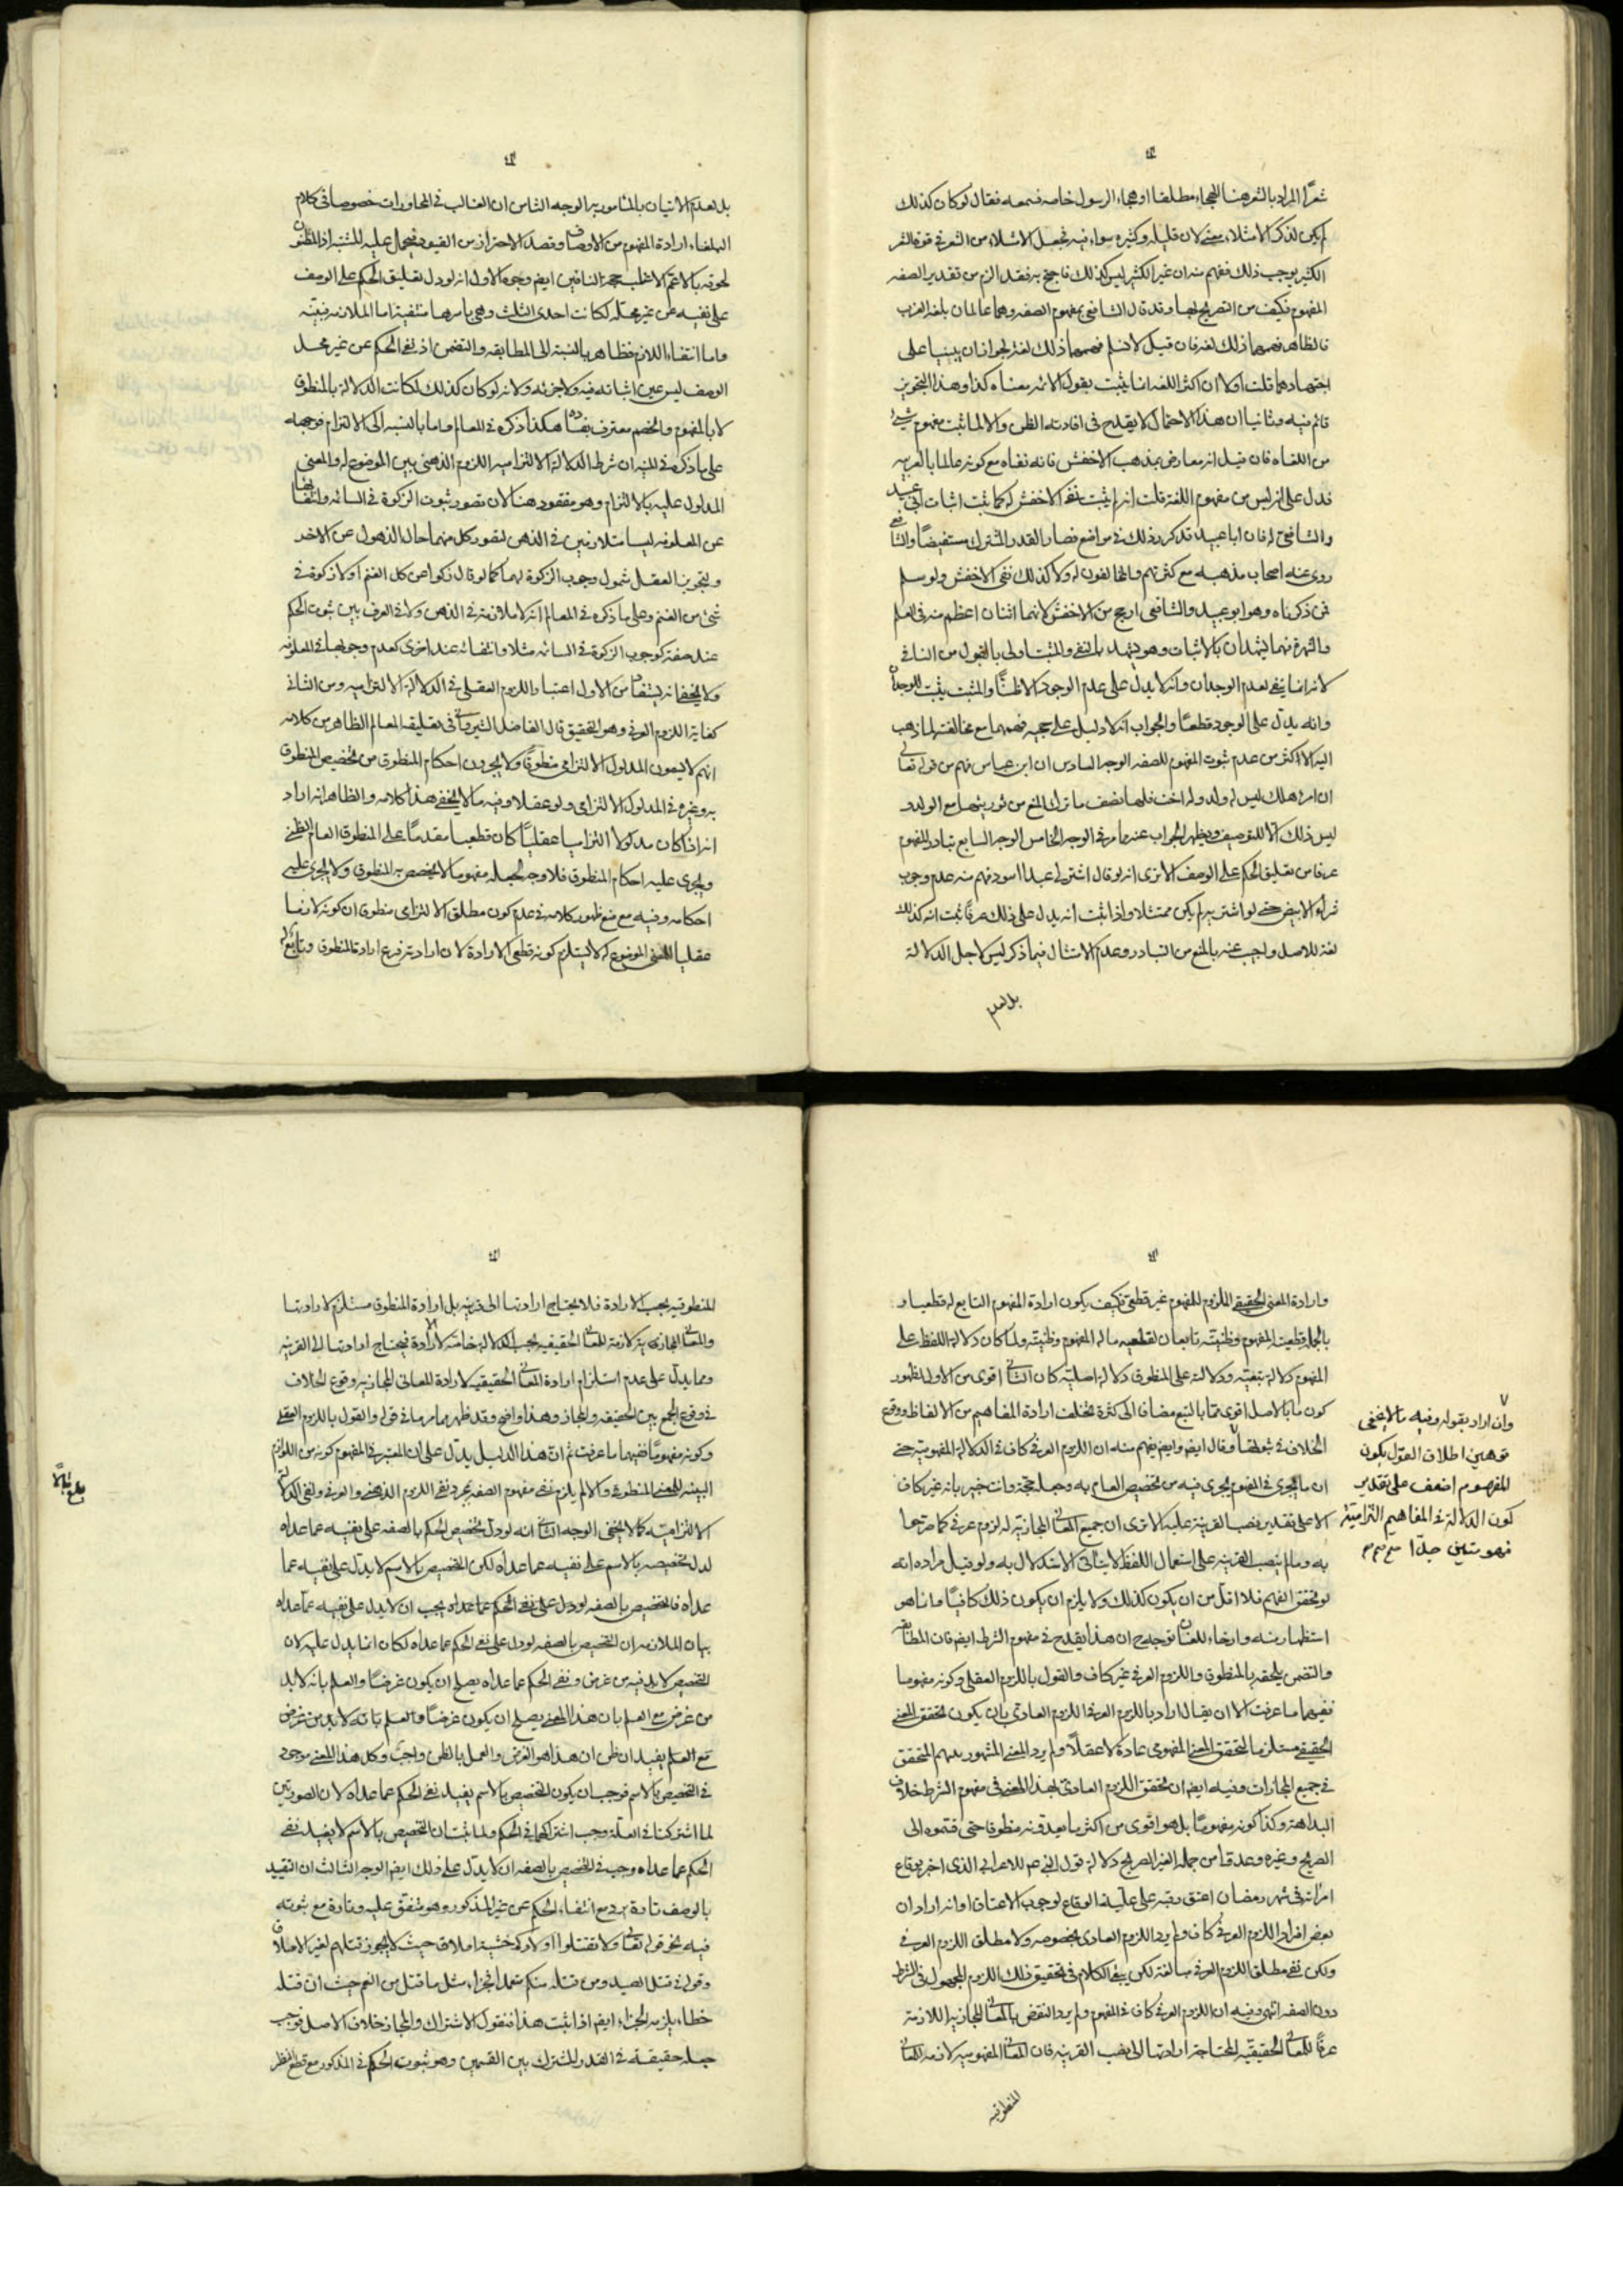 شعرًا المراد بالشعر هنا الهجاء مطلقا او هجاء الرسول خاصه فسمعه فقال لو كان كذلك
لم يكن لذكر الامتلاء معنى لان قليله وكثيره سواء فيه فجعل الامتلاء من الشعر في قوة الشعر
الكثير يوجب ذلك ففهم منه ان غير الكثير ليس كذلك فاحتج به فقد الزم من تقدير الصفه
المفهوم فكيف من التصريح بها وقد قال الشافعي بمفهوم الصفه وهما عالمان بلغه العرب
فالظاهر فهمهما ذلك لغه فان قيل لا نسلم فهمهما ذلك لغه لجواز ان يبنيا على
اجتهادهما قلت اولا ان اكثر اللغه انما يثبت بقول الائمه معناه كذا وهذا التجويز
قائم فيه وثانيا ان هذا الاحتمال لا يقدح في افادته الظن والا لما ثبت مفهوم شيء
من اللغاه فان قيل انه معارض بمذهب الاخفش فانه نفاه مع كونه عالما بالعربيه
فدل على انه ليس من مفهوم اللغة قلت انه لم يثبت نفي الاخفش له كما ثبت اثبات ابي عبيد
والشافعي له فان ابا عبيد قد كرر ذلك في مواضع فصار القدر المشترك مستفيضًا والشافعي
روى عنه اصحاب مذهبه مع كثرتهم والمخالفون له ولا كذلك نفي الاخفش ولو سلم
فمن ذكرناه وهو ابو عبيد والشافعي ارجح من الاخفش لانهما اثنان اعظم منه في العلم
والشهرة فهما يشهدان بالاثبات وهو يشهد بالنفي والمثبت اولى بالقبول من النافي
لانه انما ينفي لعدم الوجدان وانه لا يدل على عدم الوجود الا ظنًا والمثبت يثبت للوجدان
وانه يدل على الوجود قطعًا والجواب انه لا دليل على حجيه فهمهما مع مخالفته لما ذهب
اليه الاكثر من عدم ثبوت المفهوم للصفه الوجه السادس ان ابن عباس فهم من قوله تعالى
ان امرء هلك ليس له ولد وله اخت فلها نصف ما ترك المنع من توريثها مع الولد و
ليس ذلك الا للتوصيف ويظهر الجواب عنه مما مر في الوجه الخامس الوجه السابع تبادر المفهوم
عرفا من تعليق الحكم على الوصف الا ترى انه لو قال اشتر لي عبدا اسود فهم منه عدم وجوب
شراء الابيض حتى لو اشترى به لم يكن ممتثلا واذا ثبت انه يدل على ذلك عرفًا ثبت انه كذلك
لغة للاصل واجيب عنه بالمنع من التبادر وعدم الامتثال فيما ذكر ليس لاجل الدلالة
بل لعدم
بل لعدم الاتيان بالمأمور به الوجه الثامن ان الغالب في المحاورات خصوصا في كلام
البلغاء ارادة المفهوم من الاوصاف وقصد الاحتراز من القيود فيحمل عليه المشتبه اذ المظنون
لحوقه بالاعم الاغلب حجة النافين ايضم وجوه الاول انه لو دل تعليق الحكم على الوصف
على نفيه عن غير محله لكانت احدى الثلث وهي باسرها منتفية اما الملازمه فبيّنه
واما انتفاء اللازم فظاهر بالنسبة الى المطابقه والتضمن اذ نفي الحكم عن غير محل
الوصف ليس عين اثباته فيه ولا جزئه ولانه لو كان كذلك لكانت الدلالة بالمنطوق
لا بالمفهوم والخصم معترف بفساده هكذا ذكره في المعالم واما بالنسبه الى الالتزام فوجهه
على ما ذكره في المنيه ان شرط الدلالة الالتزاميه اللزوم الذهني بين الموضوع له والمعنى
المدلول عليه بالالتزام وهو مفقود هنا لان تصور ثبوت الزكوة في السائمه وانتفائها
عن المعلوفه ليسا متلازمين في الذهن لتصور كل منهما حال الذهول عن الاخر
ولتجويز العقل شمول وجوب الزكوة لهما كما لو قال زكوا عن كل الغنم او لا زكوة في
شئ من الغنم وعلى ما ذكره في المعالم انه لا ملازمة في الذهن ولا في العرف بين ثبوت الحكم
عند صفة كوجوب الزكوة في السائمه مثلا وانتفائه عند اخرى كعدم وجوبها في المعلوفه
ولا يخفى انه يستفاد من الاول اعتبار اللزوم العقلي في الدلالة الالتزاميه ومن الثاني
كفاية اللزوم العرفي وهو التحقيق قال الفاضل الشيرواني في تعليقه المعالم الظاهر من كلامه
انهم لا يسمون المدلول الالتزامي منطوقًا ولا يجرون احكام المنطوق من تخصيص المنطوق
به وغيره في المدلول الالتزامي ولو عقلا وفيه ما لا يخفى هذا كلامه والظاهر انه اراد
انه اذا كان مدلولا التزاميا عقليًا كان قطعيا مقدمًا على المنطوق العام الظني
ويجرى عليه احكام المنطوق فلا وجه لجعله مفهوما لا يخصص به المنطوق ولا يجرى عليه
احكامه وفيه مع منع ظهور كلامه في عدم كون مطلق الالتزامى منطوق ان كونه لازما
عقليا للمعنى الموضوع له لا يستلزم كونه قطعى الارادة لان ارادته فرع ارادة المنطوق وتابع له
وارادة المعنى الحقيقي الملزوم للمفهوم غير قطعي فكيف يكون ارادة المفهوم التابع له قطعيا و
بالجملة قطعية المفهوم وظنيته تابعان لقطعيه ما له المفهوم وظنيته ولما كان دلالة اللفظ على
المفهوم دلالة تبعيته ودلالته على المنطوق دلالة اصليته كان الثاني اقوى من الاول لظهور
كون ما بالاصل اقوى مما بالتبع مضافا الى كثرة تخلف ارادة المفاهيم من الالفاظ ووقوع
الخلاف في ثبوتها وقال ايضم وايضم يفهم منه ان اللزوم العرفي كاف في الدلالة المفهوميته حتى
ان ما يجرى في المفهوم يجرى فيه من تخصيص العام به وجعله حجة وانت خبير بانه غير كاف
الا على تقدير نصب القرينة عليه الا ترى ان جميع المعاني المجازيّة له لزوم عرفي كما صرّحوا
به وما لم ينصب القرينه على استعمال اللفظ لا يتأتى الاستدلال به ولو قيل مراده انه
لو تحقق الفهم فلا اقل من ان يكون كذلك ولا يلزم ان يكون ذلك كافيًا وانما هو
استظهار منه وارخاء للعنان توجه ح ان هذا يقدح في مفهوم الشرط ايضم فان المطابقه
والتضمن يلحقه بالمنطوق واللزوم العرفي غير كاف والقول باللزوم العقلي وكونه مفهوما
ففيهما ما عرفت الا ان يقال اراد باللزوم العرفي اللزوم العادي بان يكون تحقق المعنى
الحقيقي مستلزما لتحقق المعنى المفهومي عادة لا عقلًا ولم يرد المعنى المشهور بينهم المتحقق
في جميع المجازات وفيه ايضم ان تحقق اللزوم العادي لهذا المعنى في مفهوم الشرط خلاف
البداهة وكذا كونه مفهومًا بل هو اقوى من اكثر ما يعدونه منطوقا حتى قسموه الى
الصريح وغيره وعدوا من جمله الغير الصريح دلالة قول النبي ص للاعرابي الذى اخبر بوقاع
امرأته في شهر رمضان اعتق رقبه على علية الوقاع لوجوب الاعتاق او انه اراد ان
بعض افراد اللزوم العرفي كاف ولم يرد اللزوم العادى بخصوصه ولا مطلق اللزوم العرفي
ولكن نفي مطلق اللزوم العرفي مبالغة لكن يبقى الكلام في تحقيق ذلك اللزوم المجهول في الشرط
دون الصفه انتهى وفيه ان اللزوم العرفي كاف في المفهوم ولم يرد النقض بالمعاني المجازيه اللازمة
عرفًا للمعاني الحقيقيّه المحتاجة ارادتها الى نصب القرينه فان المعاني المفهوميه لازمه للمعاني
المنطوقيه
وان اراد بقوله وفيه ما لا يخفى
توهين اطلاق القول بكون
المفهوم اضعف على تقدير
كون الدلالة في المفاهيم التزاميّة
فهو متين جدّا
المنطوقيه بحسب الارادة فلا يحتاج ارادتها الى قرينه بل ارادة المنطوق مستلزم لارادتها
والمعاني المجازيه لازمة للمعاني الحقيقيه بحسب الدلالة خاصّه لا الارادة فيحتاج ارادتها الى القرينه
ومما يدل على عدم استلزام ارادة المعاني الحقيقيه لارادة المعانى المجازيه وقوع الخلاف
في وقوع الجمع بين الحقيقه والمجاز وهذا واضح وقد ظهر مما مر ما في قوله والقول باللزوم العقلي
وكونه مفهومًا ففيهما ما عرفت ثم ان هذا الدليل يدل على ان المعتبر في المفهوم كونه من اللوازم
البينه للمعنى المنطوقي والا لم يلزم نفي مفهوم الصفه بمجرد نفي اللزوم الذهني والعرفي ولنفي الدلالة
الالتزاميّة كما لا يخفى الوجه الثاني انه لو دلّ تخصيص الحكم بالصفه على نفيه عما عداه
لدل تخصيصه بالاسم على نفيه عما عداه لكن التخصيص بالاسم لا يدل على نفيه عما
عداه فالتخصيص بالصفه لو دل على نفي الحكم عما عداه يجب ان لا يدل على نفيه عما عداه
بيان الملازمه ان التخصيص بالصفه لو دل على نفي الحكم عما عداه لكان انما يدل عليه لان
التخصيص لابد فيه من غرض ونفي الحكم عما عداه يصلح ان يكون غرضًا والعلم بانه لابد
من غرض مع العلم بان هذا المعنى يصلح ان يكون غرضًا والعلم بانه لابد من غرض
مع العلم يفيد ان ظن ان هذا هو الغرض والعمل بالظن واجب وكل هذا المعنى موجود
في التخصيص بالاسم فوجب ان يكون التخصيص بالاسم يفيد نفي الحكم عما عداه لان الصورتين
لما اشتركتا في العلّة وجب اشتراكهما في الحكم ولما ثبت ان التخصيص بالاسم لا يفيد نفي
الحكم عما عداه وجب في التخصيص بالصفه ان لا يدل على ذلك ايضم الوجه الثالث ان التقييد
بالوصف تارة يرد مع انتفاء الحكم عن غير المذكور وهو متفق عليه وتارة مع ثبوته
فيه نحو قوله تعالى ولا تقتلوا اولادكم خشية املاق حيث لا يجوز قتلهم لغير الاملاق
وقوله في قتل الصيد ومن قتله منكم متعمدا فجزاء مثل ما قتل من النعم حيث ان قتله
خطاء يلزمه الجزاء ايضم اذا ثبت هذا فنقول الاشتراك والمجاز خلاف الاصل فوجب
جعله حقيقة في القدر المشترك بين القسمين وهو ثبوت الحكم في المذكور مع قطع النظر